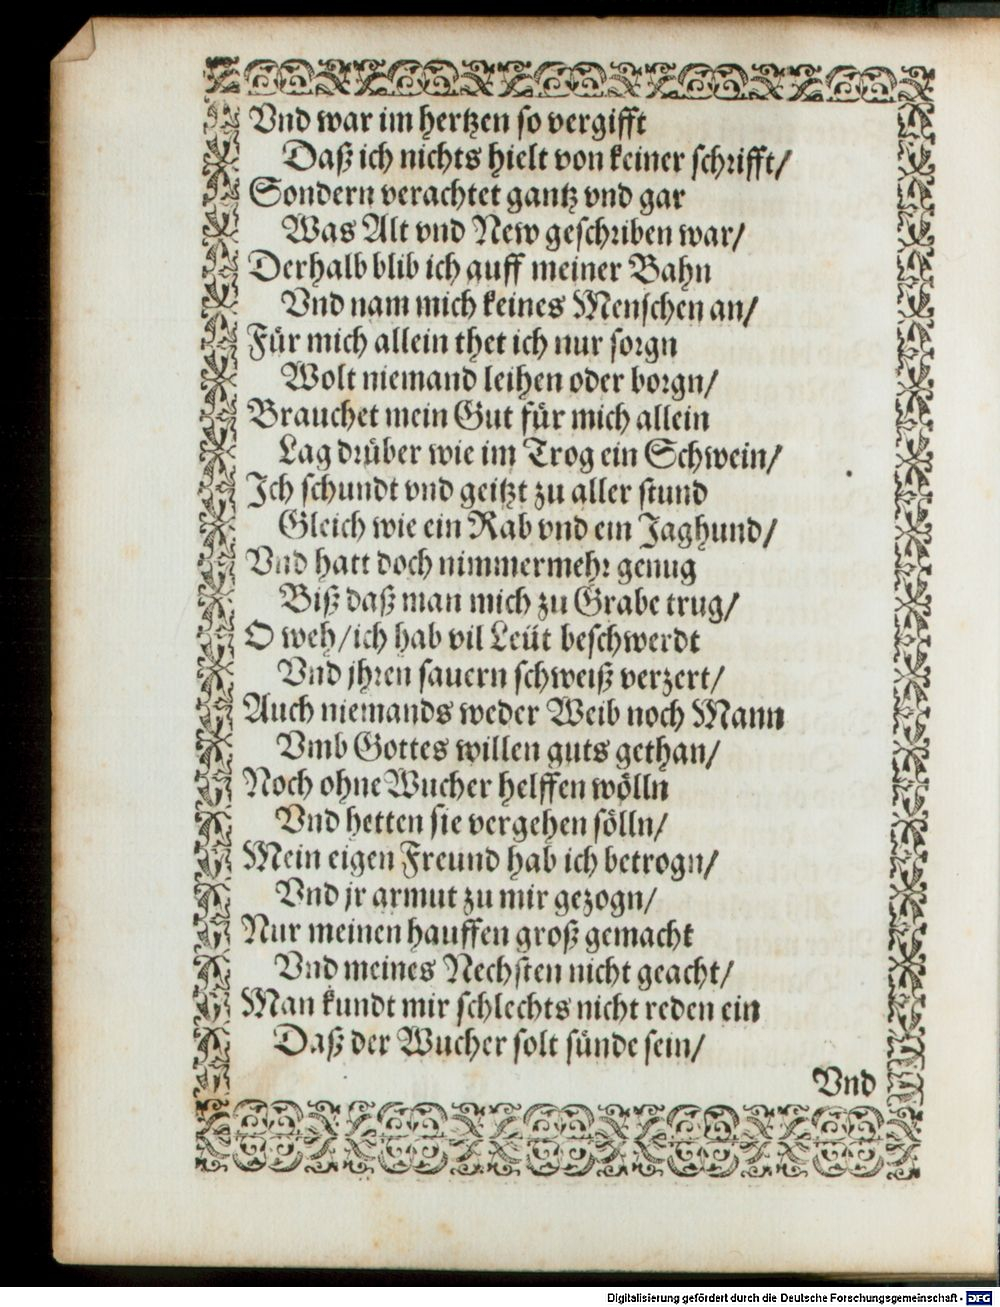 Vnd war im hertzen so vergifft
Daß ich nichts hielt von keiner schrifft/
Sondern verachtet gantz vnd gar
Was Alt vnd New geschriben war/
Derhalb blib ich auff meiner Bahn
Vnd nam mich keines Menschen an/
Für mich allein thet ich nur sorgn
Wolt niemand leihen oder borgn/
Brauchet mein Gut für mich allein
Lag drüber wie im Trog ein Schwein/
Ich schundt vnd geitzt zu aller stund
Gleich wie ein Rab vnd ein Jaghund/
Vnd hatt doch nimmermehr genug
Biß daß man mich zu Grabe trug/
O weh/ich hab vil Leüt beschwerdt
Vnd jhren sauern schweiß verzert/
Auch niemands weder Weib noch Mann
Vmb Gottes willen guts gethan/
Noch ohne Wucher helffen wölln
Vnd hetten sie vergehen sölln/
Mein eigen Freund hab ich betrogn/
Vnd jr armut zu mir gezogn/
Nur meinen hauffen groß gemacht
Vnd meines Nechsten nicht geacht/
Man kundt mir schlechts nicht reden ein
Daß der Wucher solt sünde sein/
Vnd
Digitalisierung gefördert durch die Deutsche Forschungsgemeinschaft - DFG